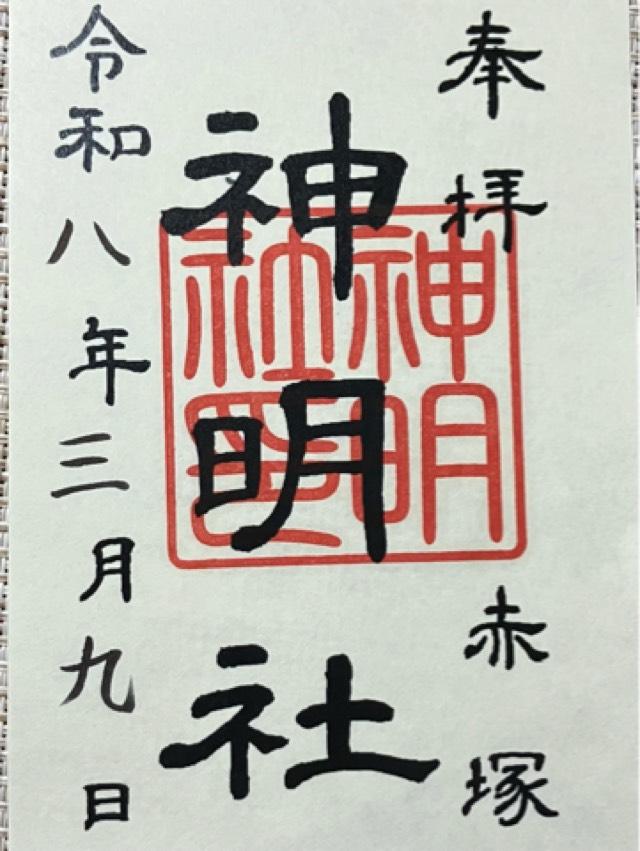 奉拝
赤塚
神明社
神明社印
令和八年三月九日